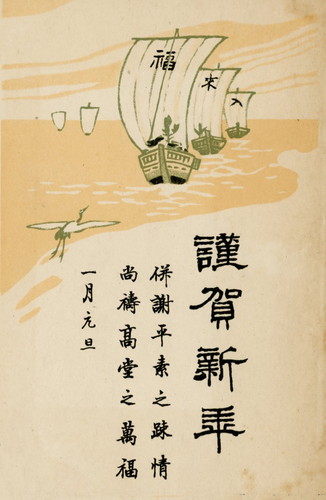 福
入
謹賀新年
併謝平素之疎情
尚禱髙堂之萬福
一月元旦